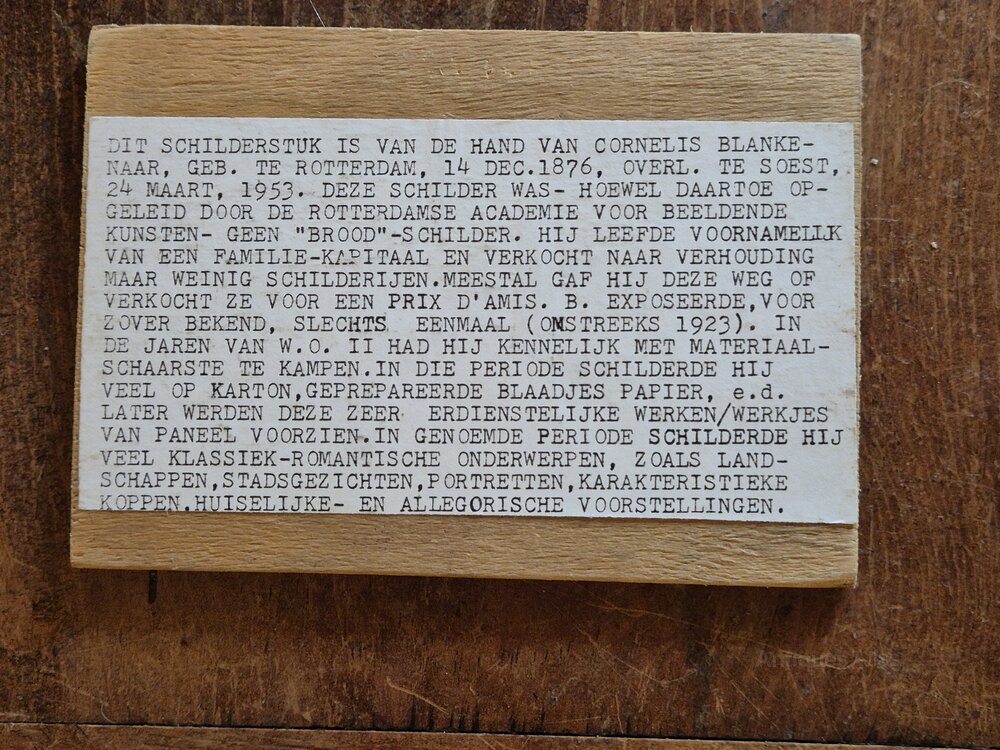 DIT SCHILDERSTUK IS VAN DE HAND VAN CORNELIS BLANKE-
NAAR, GEB. TE ROTTERDAM, 14 DEC.1876, OVERL. TE SOEST,
24 MAART, 1953. DEZE SCHILDER WAS- HOEWEL DAARTOE OP-
GELEID DOOR DE ROTTERDAMSE ACADEMIE VOOR BEELDENDE
KUNSTEN- GEEN "BROOD"-SCHILDER. HIJ LEEFDE VOORNAMELIJK
VAN EEN FAMILIE-KAPITAAL EN VERKOCHT NAAR VERHOUDING
MAAR WEINIG SCHILDERIJEN.MEESTAL GAF HIJ DEZE WEG OF
VERKOCHT ZE VOOR EEN PRIX D'AMIS. B. EXPOSEERDE,VOOR
ZOVER BEKEND, SLECHTS EENMAAL (OMSTREEKS 1923). IN
DE JAREN VAN W.O. II HAD HIJ KENNELIJK MET MATERIAAL-
SCHAARSTE TE KAMPEN.IN DIE PERIODE SCHILDERDE HIJ
VEEL OP KARTON,GEPREPAREERDE BLAADJES PAPIER, e.d.
LATER WERDEN DEZE ZEER ERDIENSTELIJKE WERKEN/WERKJES
VAN PANEEL VOORZIEN.IN GENOEMDE PERIODE SCHILDERDE HIJ
VEEL KLASSIEK-ROMANTISCHE ONDERWERPEN, ZOALS LAND-
SCHAPPEN,STADSGEZICHTEN,PORTRETTEN,KARAKTERISTIEKE
KOPPEN.HUISELIJKE- EN ALLEGORISCHE VOORSTELLINGEN.